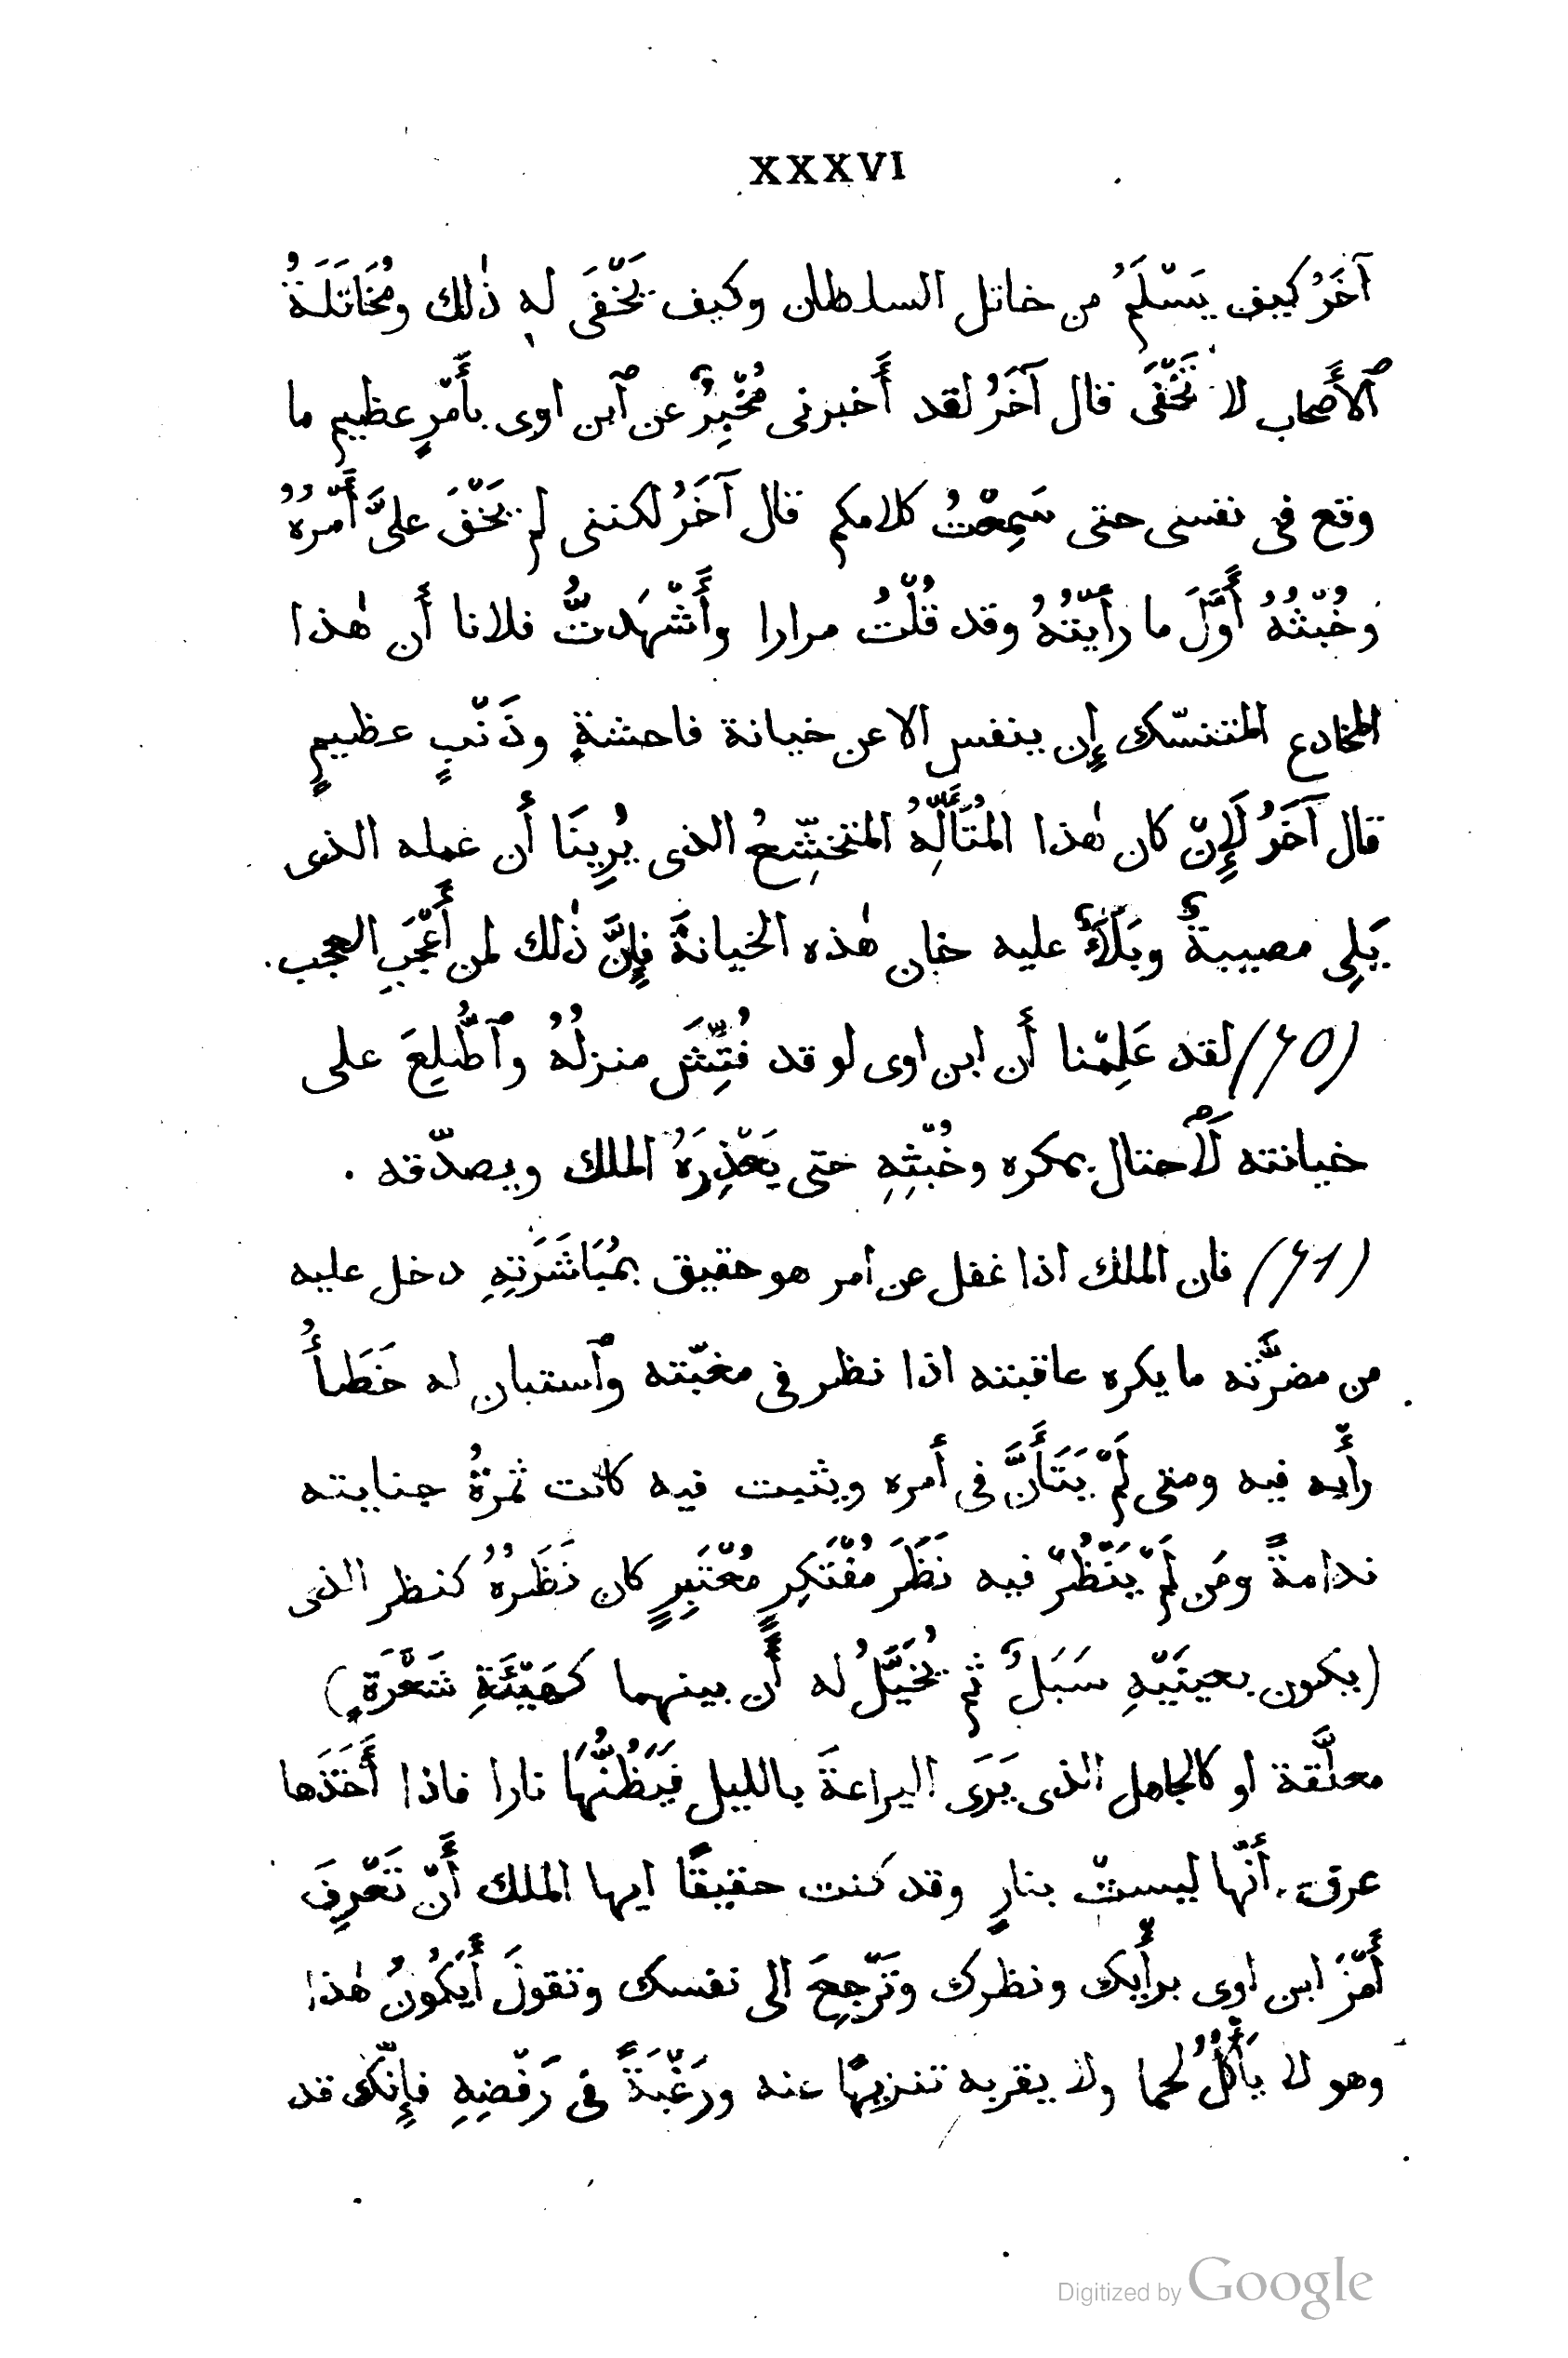 XXXVI
آخَرُ كيف يَسْلَمُ من خاتل السلطان وكيف يَخْفَى له ذٰلك ومُخَاتَلَةُ
ٱلأَصحاب لا تَخْفَى قال آخَرُ لقد أَخبرنى مُخْبِرٌ عن ٱبن اوى بأَمْرٍ عظيم ما
وقع فى نفسى حتى سَمِعْتُ كلامكم قال آخَرُ لكننى لم يَخْفَ علىَّ أَمْرُهُ
وخُبْثُهُ أَوَّلَ ما رأَيْتُهُ وقد قُلْتُ مرارا وأَشْهَدتُّ فلانا أن هٰذا
المخادع المتنسّك إن ينفس الا عن خيانة فاحشةٍ وذَنْبٍ عظيمٍ
قال آخَرُ لَإِنْ كان هٰذا المُتَأَلِّهُ المتخشِّعُ الذى يُرِينَا أن عمله الذى
يَلِى مصيبةٌ وبَلَآءٌ عليه خان هٰذه الخيانةَ فإِنَّ ذٰلك لمن أَعْجَبِ العجب.
(٦٥) لقد عَلِمْنا أن ابن اوى لو قد فُتِّشَ منزلُهُ وٱطُّلِعَ على
خيانته لَٱحتال بمكره وخُبْثِهِ حتى يَعْذِرَهُ الملك ويصدّقه .
(٦٦) فان الملك اذا غفل عن امر هو حقيق بمُبَاشَرَتِهِ دخل عليه
من مضرَّته ما يكره عاقبته اذا نظر فى مغبّته وٱستبان له خَطَأُ
رأْيه فيه ومتى لَمْ يَتَأَنَّ فى أمره ويثبت فيه كانت ثمرةُ جنايته
ندامةً ومَن لَمْ يَنْظُرْ فيه نَظَرَ مُفْتَكِرٍ مُعْتَبِرٍ كان نَظَرُهُ كنظر الذى
(يكون بعينَيْهِ سَبَلٌ ثم يُخَيَّلُ له أَن بينهما كهَيْئَةِ شَعْرَةٍ)
معلَّقة او كالجاهل الذى يَرَى اليراعةَ بالليل فيَظُنُّهَا نارا فاذا أَخَذَها
عرف أنّها ليستْ بنارٍ وقد كنت حقيقًا ايها الملك أَنْ تَعْرِفَ
أَمْرَ ابن اوى برأْيك ونظرك وتَرْجِعَ الى نفسك وتقولَ أَيَكُونُ هٰذا
وهو لا يَأْكُلُ لحما ولا يقربه تنزيهًا عنه ورَغْبَةً فى رَفْضِهِ فإِنّك قد
Digitized by Google